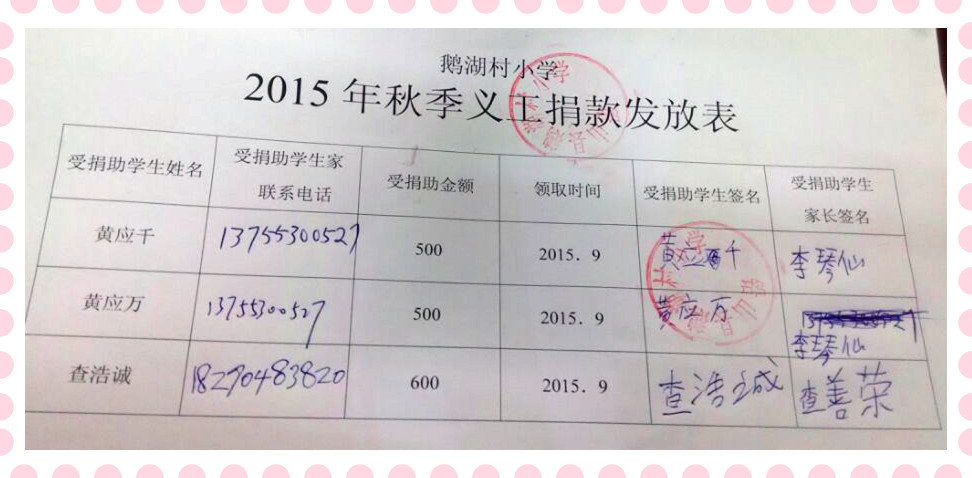 鹅湖村小学
2015 年秋季义工捐款发放表
受捐助学生姓名 受捐助学生家联系电话 受捐助金额 领取时间 受捐助学生签名 受捐助学生家长签名
黄应千 13755300527 500 2015.9 黄应千 李琴仙
黄应万 13755300527 500 2015.9 黄应万 李琴仙
查浩诚 18290483820 600 2015.9 查浩诚 查善荣